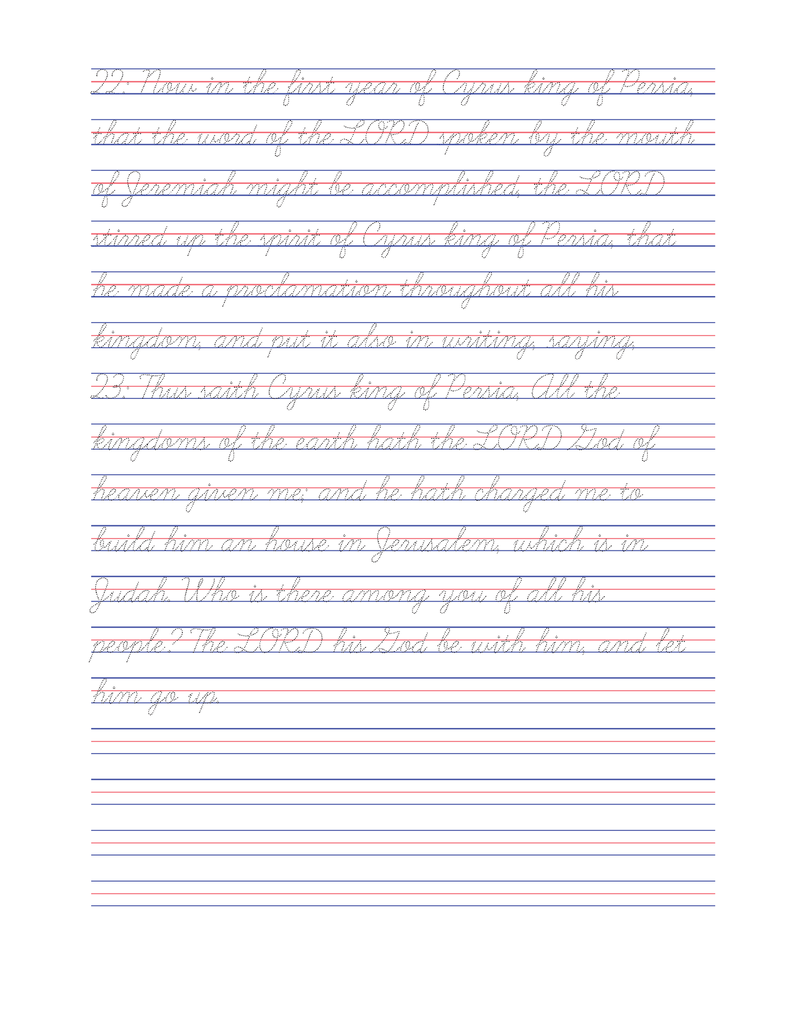 22: Now in the first year of Cyrus king of Persia,
that the word of the LORD spoken by the mouth
of Jeremiah might be accomplished, the LORD
stirred up the spirit of Cyrus king of Persia, that
he made a proclamation throughout all his
kingdom, and put it also in writing, saying,
23: Thus saith Cyrus king of Persia, All the
kingdoms of the earth hath the LORD God of
heaven given me; and he hath charged me to
build him an house in Jerusalem, which is in
Judah. Who is there among you of all his
people? The LORD his God be with him, and let
him go up.